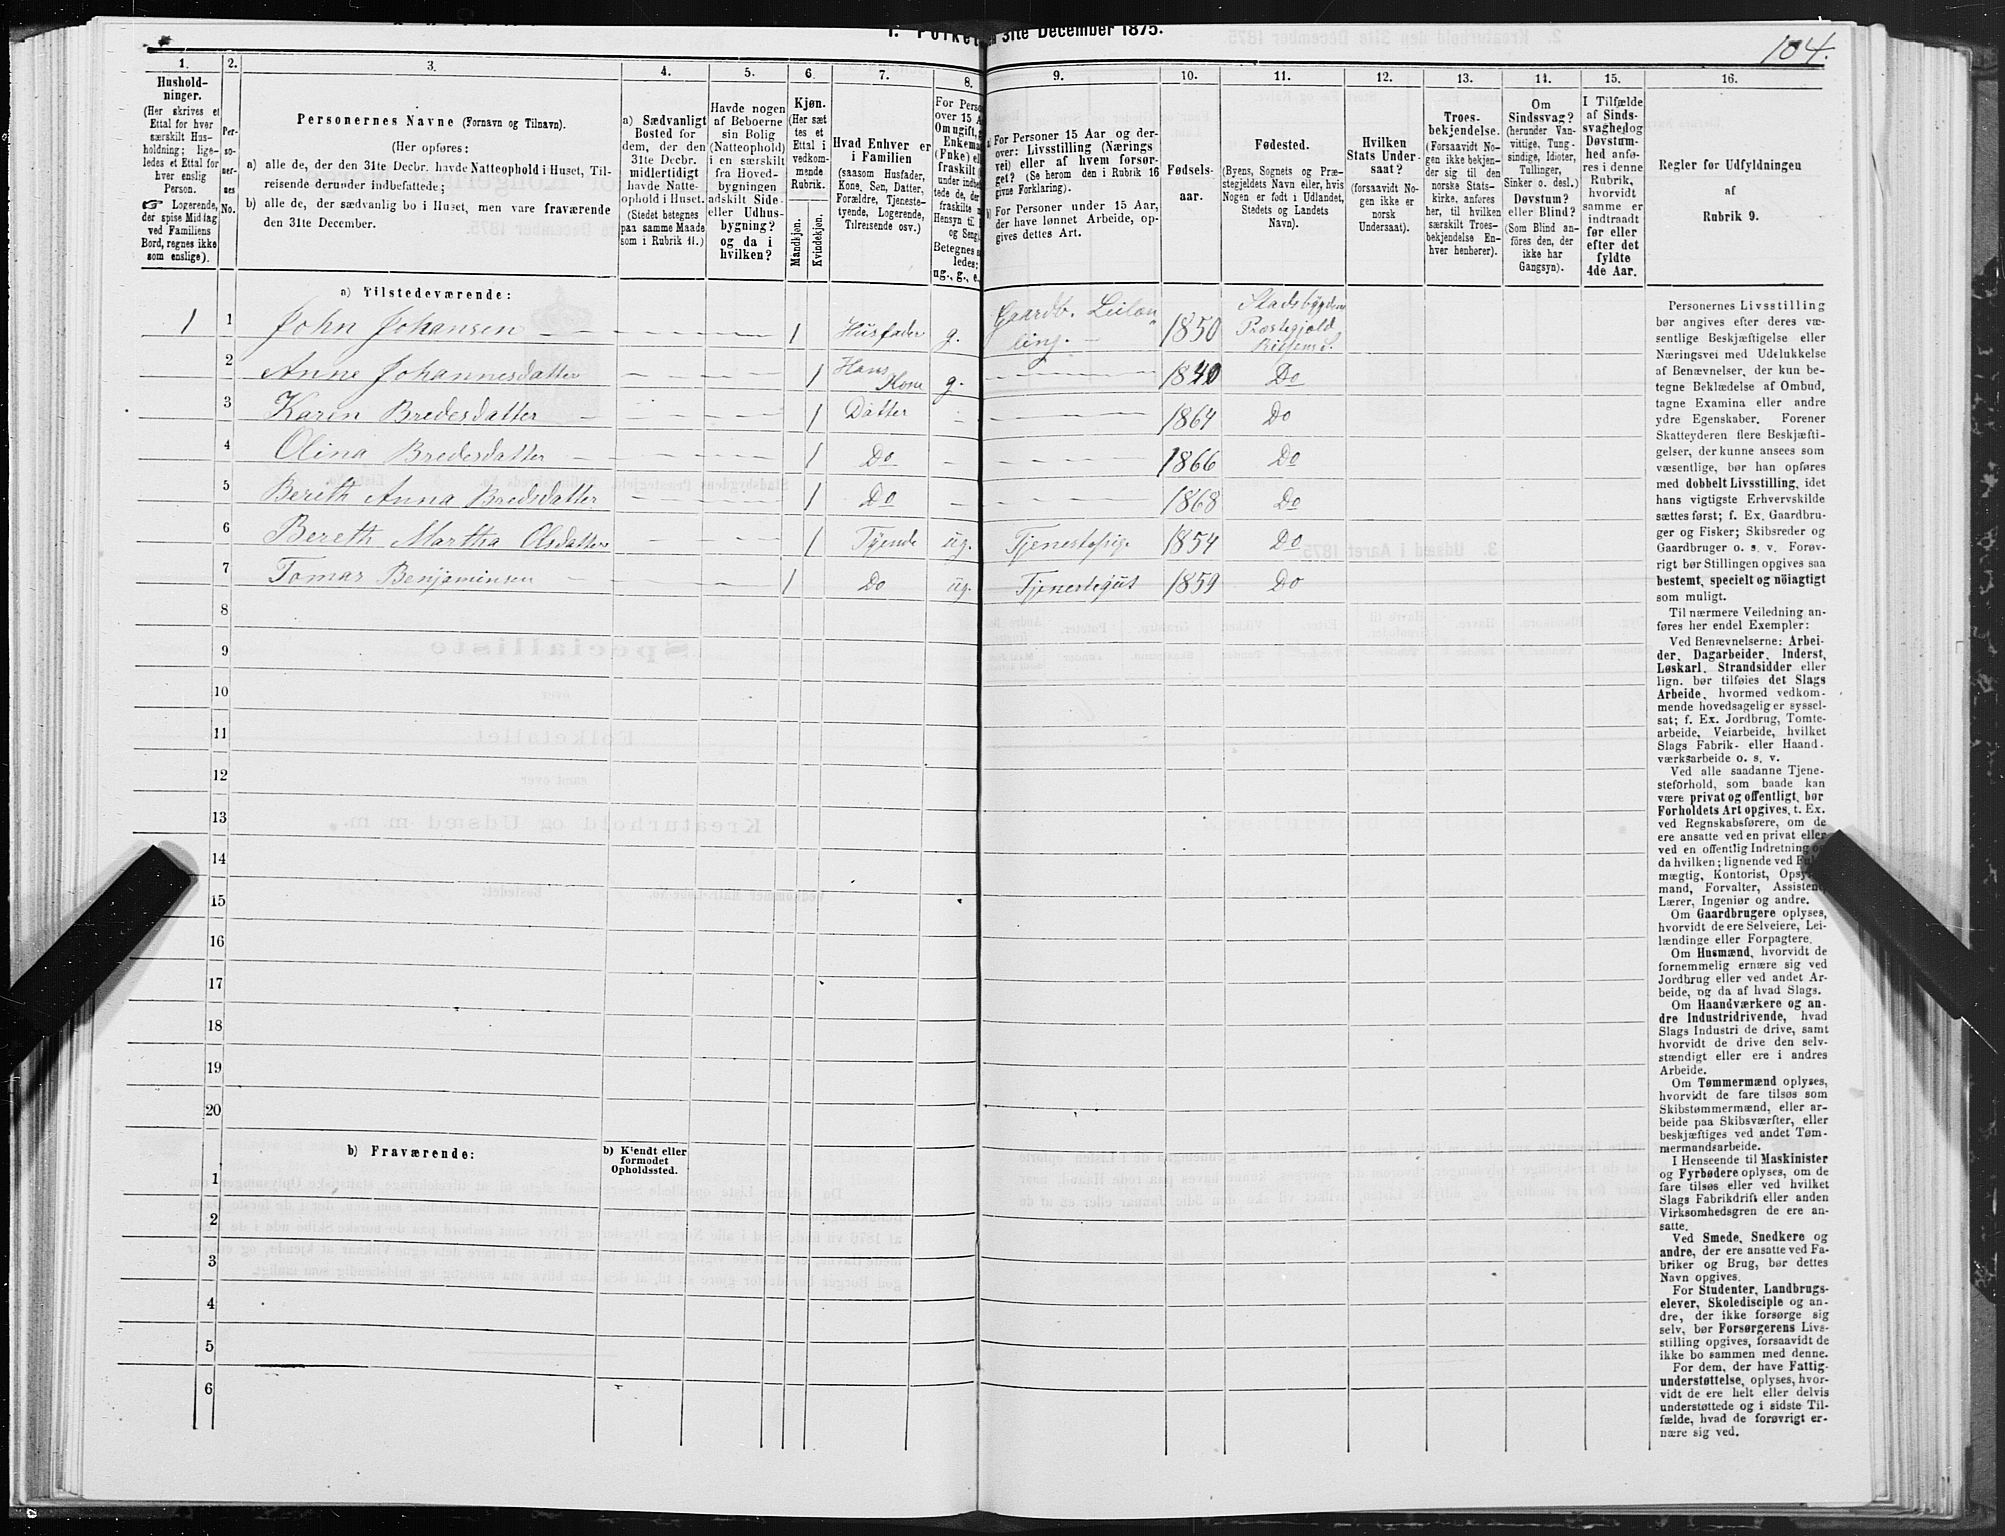 1. Folket 31te December 1875.
104.
1. 2. 3. 4. 5. 6. 7. 8. 9. 10. 11. 12. 13. 14. 15. 16.
Hushold-
ninger.
(Her skrives et
Ettal for hver
særskilt Hus-
holdning; lige-
ledes et Ettal for
hver enslig
Person.
☞ Logerende,
der spise Middag
ved Familiens
Bord, regnes ikke
som enslige).
Per-
so-
ner-
nes
No.
Personernes Navne (Fornavn og Tilnavn).
(Her opføres:
a) alle de, der den 31te Decbr. havde Natteophold i Huset, Til-
reisende derunder indbefattede;
b) alle de, der sædvanlig bo i Huset, men vare fraværende
den 31te December.
a) Sædvanligt
Bosted for
dem, der den
31te Decbr.
midlertidigt
havde Natte-
ophold i Huset.
(Stedet betegnes
paa samme Maade
som i Rubrik 11.)
Havde nogen
af Beboerne
sin Bolig
(Natteophold)
i en særskilt
fra Hoved-
bygningen
adskilt Side-
eller Udhus-
bygning?
og da i
hvilken?
Kjøn.
(Her sæt
tes et
Ettal i
vedkom-
mende
Rubrik.
Mandkjøn.
Kvindekjøn.
Hvad Enhver er
i Familien
(saasom Husfader,
Kone, Søn, Datter,
Forældre, Tjeneste-
tyende, Logerende,
Tilreisende osv.)
For Perso
over 15 A
Om ugift,
Enkema
(Enke) el
fraskilt
under indbe
tede de, der
fraskilte
Hensyn til
og Seng
Betegnes
ledes:
ug., g., e.
a) For Personer 15 Aar og der-
over: Livsstilling (Nærings
vei) eller af hvem forsør-
get? (Se herom den i Rubrik 16
givne Forklaring).
b) For Personer under 15 Aar,
der have lønnet Arbeide, op-
gives dettes Art.
Fødsels-
aar.
Fødested.
(Byens, Sognets og Præ-
stegjeldets Navn eller, hvis
Nogen er født i Udlandet,
Stedets og Landets
Navn).
Hvilken
Stats Under-
saat?
(forsaavidt No-
gen ikke er
norsk
Undersaat).
Troes-
bekjendelse.
(Forsaavidt No-
gen ikke bekjen-
der sig til den
norske Stats-
kirke, anføres
her, til hvilken
særskilt Troes-
bekjendelse En-
hver henhører).
Om
Sindssvag?
(herunder Van-
vittige, Tung-
sindige, Idioter,
Tullinger,
Sinker o. desl.)
Døvstum?
eller Blind?
(Som Blind an-
føres den, der
ikke har
Gangsyn).
I Tilfælde
af Sinds-
svaghed og
Døvstum-
hed anfø-
res i denne
Rubrik,
hvorvidt
samme er
indtraadt
før eller
efter det
fyldte
4de Aar.
Regler for Udfyldningen
af
Rubrik 9.
a) Tilstedeværende:
1 1 John Johansen 1 Husfader g. Gaardb. Leilæn 1850 Stadsbygdens
ling. Præstegjeld
Rissens S.
2 Anne Johannesdatter 1 Hans Kone g. 1840 Do
3 Karen Bredesdatter 1 Datter 1864 Do
4 Olina Bredesdatter 1 Do 1866 Do
5 Bereth Anna Bredsdatter 1 Do 1868 Do
6 Bereth Martha Olsdatter 1 Tyende ug. Tjenestepige 1854 Do
7 Tomas Benjaminsen 1 Do ug. Tjenestegut 1859 Do
8
9
10
11
12
13
14
15
16
17
18
19
20
b) Fraværende:
b) Kjendt eller
formodet
Opholdssted.
1
2
3
4
5
6
Personernes Livsstilling
bør angives efter deres væ-
sentlige Beskjæftigelse eller
Næringsvei med Udelukkelse
af Benævnelser, der kun be-
tegne Beklædelse af Ombud,
tagne Examina eller andre
ydre Egenskaber. Forener
Skatteyderen flere Beskjæfti-
gelser, der kunne ansees som
væsentlige, bør han opføres
med dobbelt Livsstilling, idet
hans vigtigste Erhvervskilde
sættes først; f. Ex. Gaardbru-
ger og Fisker; Skibsreder og
Gaardbruger o. s. v. Forøv-
rigt bør Stillingen opgives saa
bestemt, specielt og nöiagtigt
som muligt.
Til nærmere Veiledning an-
føres her endel Exempler:
Ved Benævnelserne: Arbei-
der, Dagarbeider, Inderst,
Løskarl, Strandsidder eller
lign. bør tilføies det Slags
Arbeide, hvormed vedkom-
mende hovedsagelig er syssel-
sat; f. Ex. Jordbrug, Tomte-
arbeide, Veiarbeide, hvilket
Slags Fabrik- eller Haand-
værksarbeide o. s. v.
Ved alle saadanne Tjene-
steförhold, som baade kan
være privat og offentligt, bør
Forholdets Art opgives, t. Ex.
ved Regnskabsførere, om de
ere ansatte ved en privat eller
ved en offentlig Indretning og
da hvilken; lignende ved Ful-
mægtig, Kontorist, Opsyns-
mand, Forvalter, Assistent,
Lærer, Ingeniør og andre.
Om Gaardbrugere oplyses,
hvorvidt de ere Selveiere, Lei-
lændinge eller Forpagtere.
Om Husmænd, hvorvidt de
fornemmelig ernære sig ved
Jordbrug eller ved andet Ar-
beide, og da af hvad Slags.
Om Haandværkere og an-
dre Industridrivende, hvad
Slags Industri de drive, samt
hvorvidt de drive den selv-
stændigt eller ere i andres
Arbeide.
Om Tømmermænd oplyses,
hvorvidt de fare tilsøs som
Skibstømmermænd, eller ar-
beide paa Skibsværfter, eller
beskjæftiges ved andet Tøm-
mermandsarbeide.
I Henseende til Maskinister
og Fyrbødere oplyses, om de
fare tilsøs eller ved hvilket
Slags Fabrikdrift eller anden
Virksomhedsgren de ere an-
satte.
Ved Smede, Snedkere og
andre, der ere ansatte ved Fa-
briker og Brug, bør dettes
Navn opgives.
For Studenter, Landbrugs-
elever, Skoledisciple og an-
dre, der ikke forsørge sig
selv, bør Forsørgerens Livs-
stilling opgives, forsaavidt de
ikke bo sammen med denne.
For dem, der have Fattig-
understøttelse, oplyses, hvor-
vidt de ere helt eller delvis
understøttede og i sidste Til-
fælde, hvad de forøvrigt er-
nære sig ved.